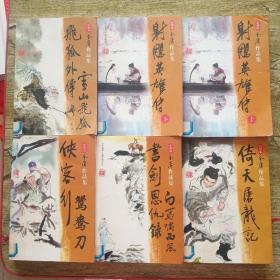 金庸作品集
飛狐外傳
雪山飛狐
金庸作品集
射鵰英雄傳
下
金庸作品集
射鵰英雄傳
上
金庸作品集
俠客行
鴛鴦刀
金庸作品集
書劍恩仇錄
白馬嘯西風
金庸作品集
倚天屠龍記